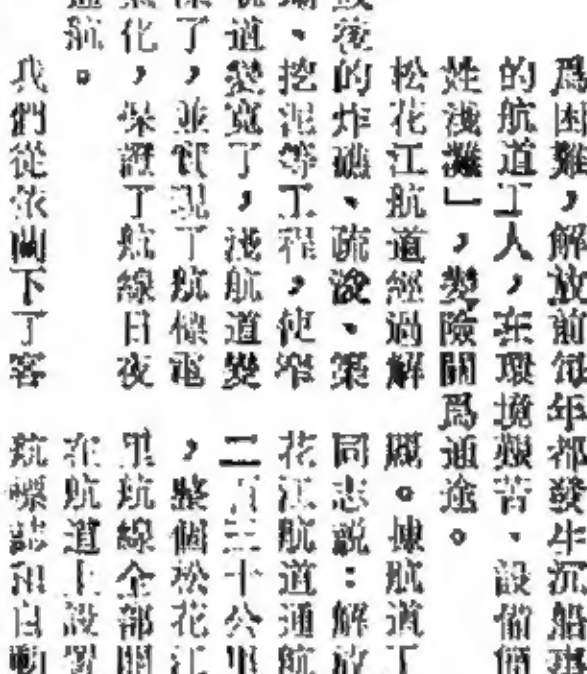 爲困難,解放前每年都發生沉船事
的航道工人,在環境艱苦、設備簡
姓淺灘」,變險關爲通途。
松花江航道經過解
後的炸礁、疏浚、築
、挖泥等工程,使窄
道變寬了,淺航道變
了,並實現了航標電
化,保證了航線日夜
航。
我們從依蘭下了客
。據航道工
同志說:解放
花江航道通航
二百三十公里
,整個松花江
里航線全部開
在航道上設置
航標誌和自動